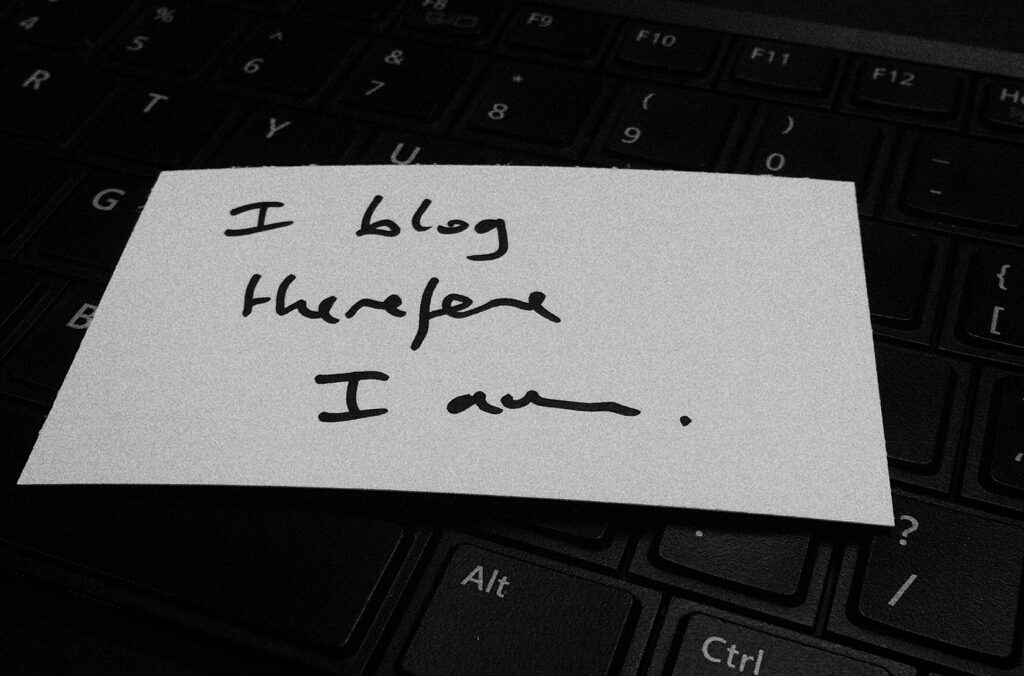 F8
F9
F10
F11
F12
4
%
5
^
6
&
7
*
8
(
9
)
0
_
-
R
T
Y
U
G
{
[
B
I blog
therefore
I am.
?
/
Alt
Ctrl